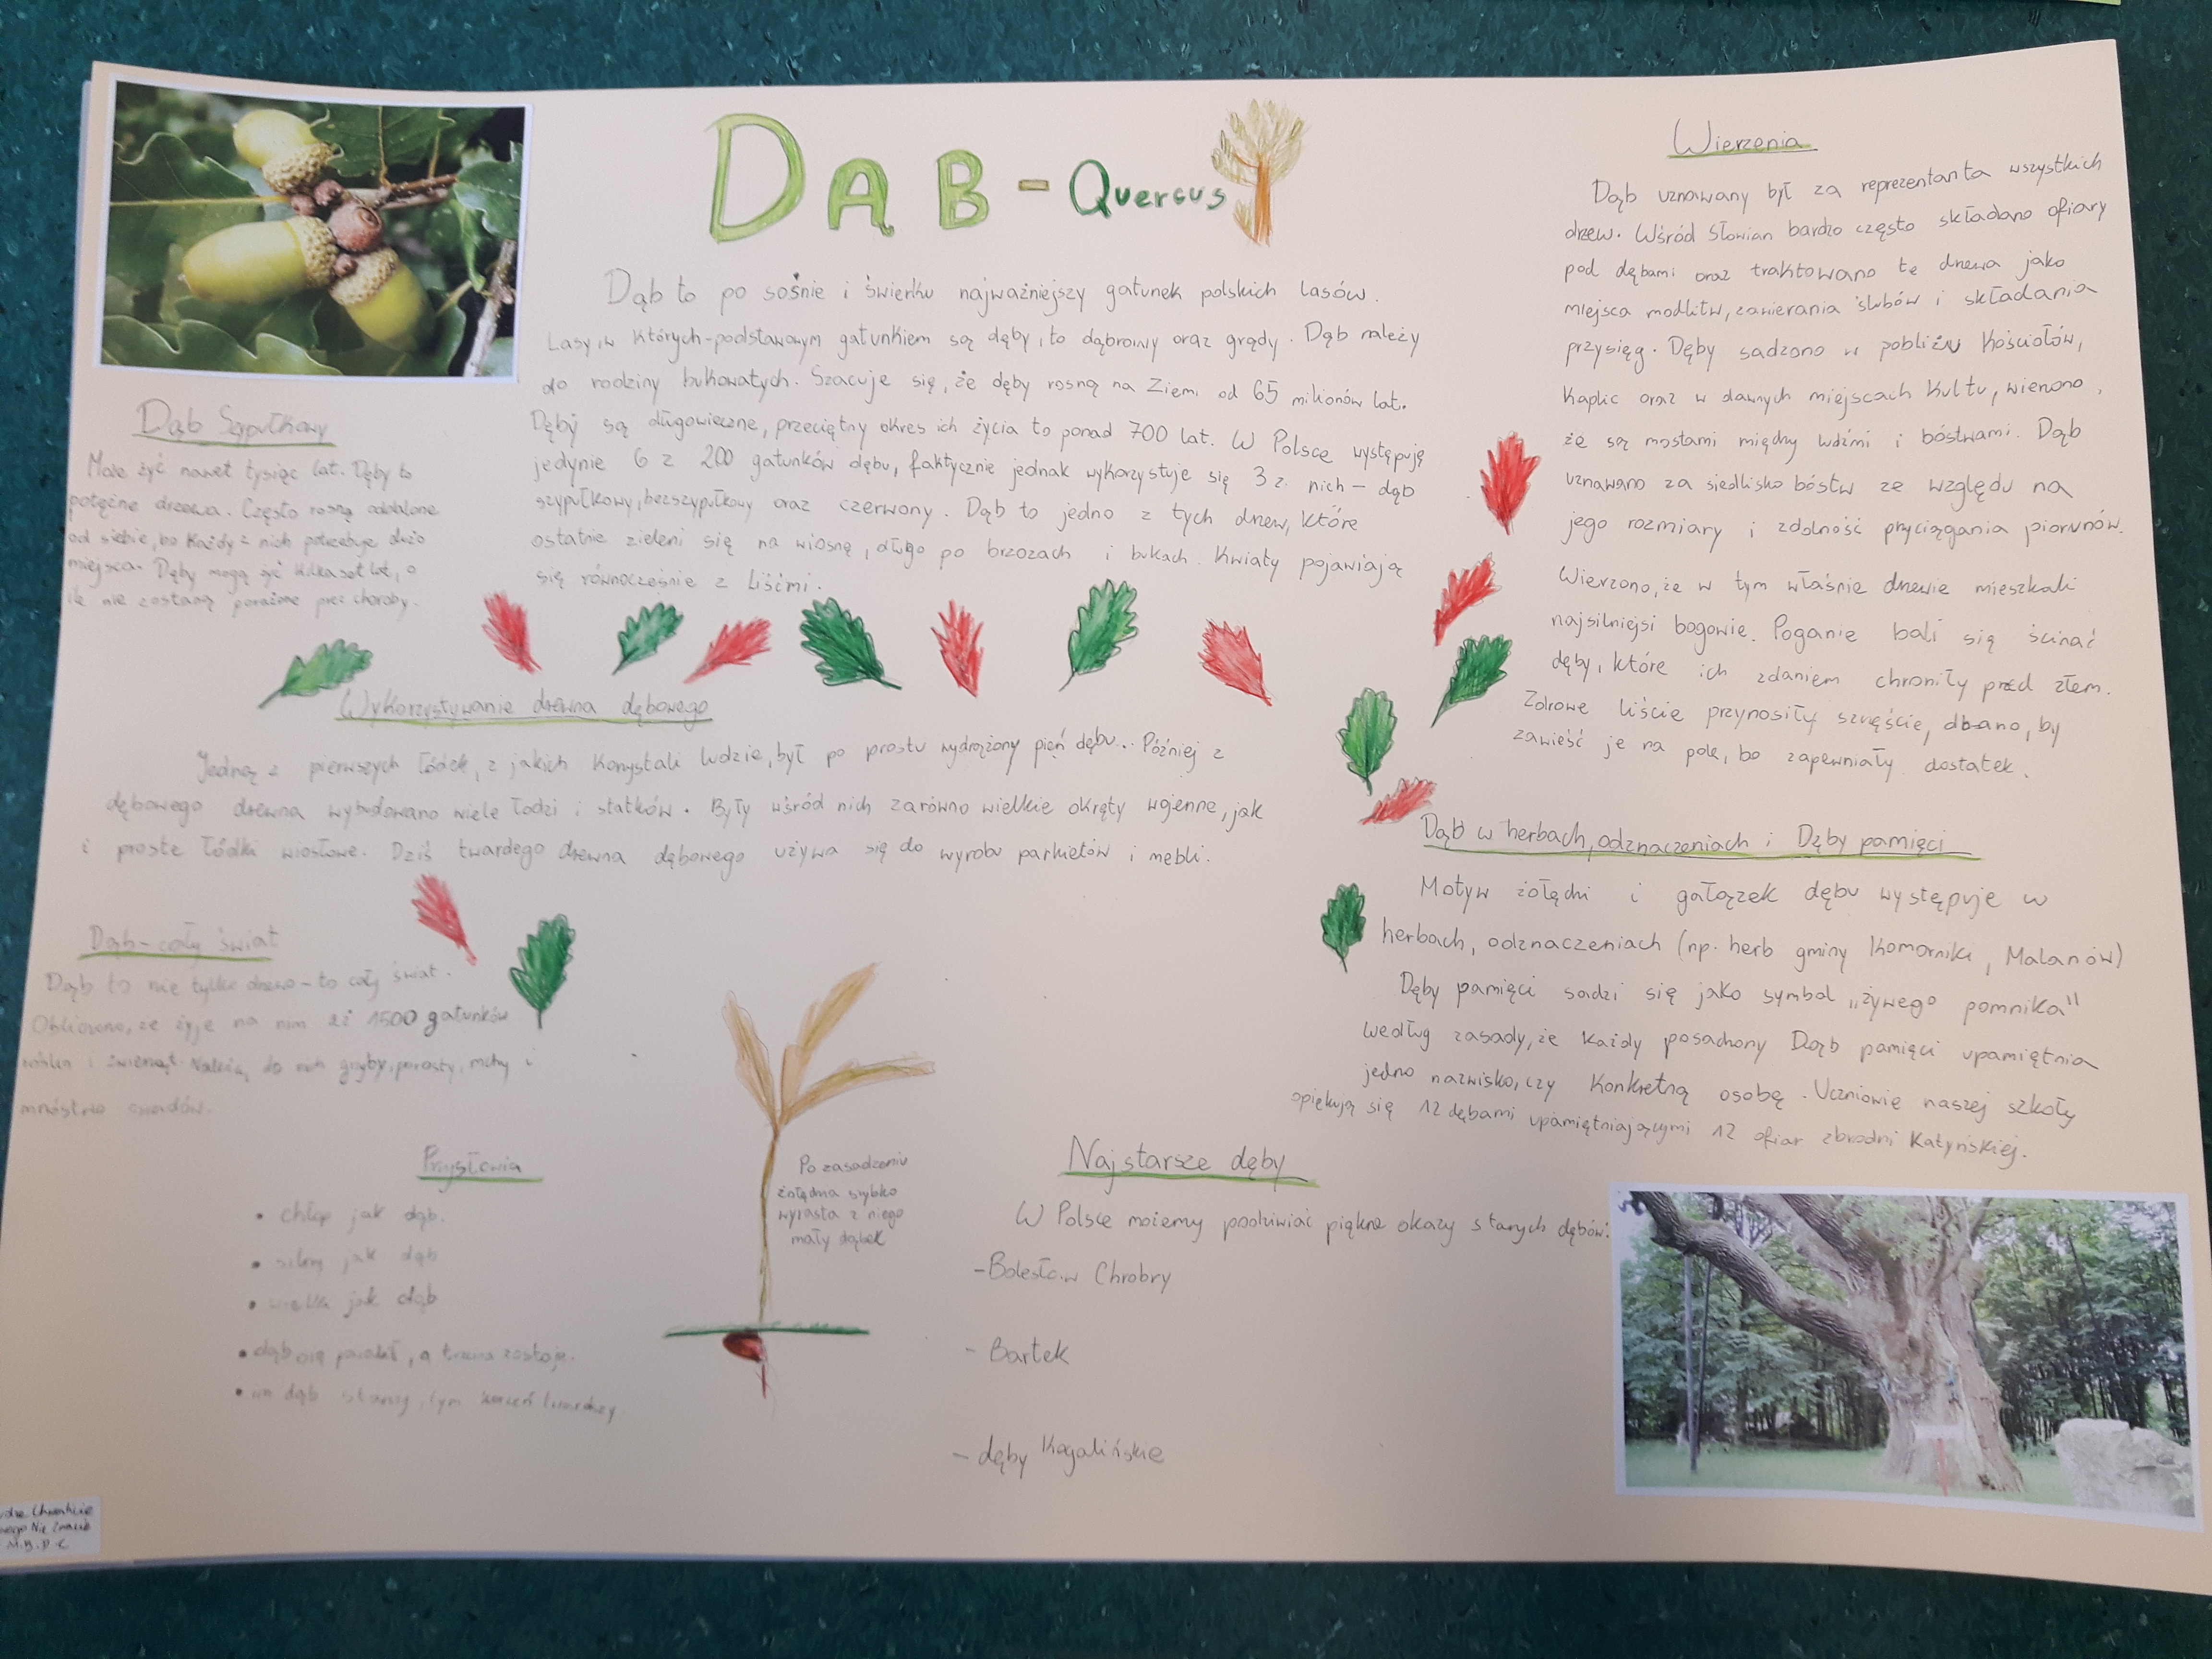 DĄB - Quercus
Dąb to po sośnie i świerku najważniejszy gatunek polskich lasów.
Lasy, w których podstawowym gatunkiem są dęby, to dąbrowy oraz grądy. Dąb należy
do rodziny bukowatych. Szacuje się, że dęby rosną na Ziemi od 65 milionów lat.
Dęby są długowieczne, przeciętny okres ich życia to ponad 700 lat. W Polsce występuję
jedynie 6 z 200 gatunków dębu, faktycznie jednak wykorzystuje się 3 z nich - dąb
szypułkowy, bezszypułkowy oraz czerwony. Dąb to jedno z tych drzew, które
ostatnie zieleni się na wiosnę, długo po brzozach i bukach. Kwiaty pojawiają
się równocześnie z liśćmi.
Dąb Szypułkowy
Może żyć nawet tysiąc lat. Dęby to
potężne drzewa. Często rosną oddalone
od siebie, bo każdy z nich potrzebuje dużo
miejsca. Dęby mogą żyć kilkaset lat, o
ile nie zostaną porażone prez choroby.
Wykorzystywanie drewna dębowego
Jedną z pierwszych łódek, z jakich korzystali ludzie, był po prostu wydrążony pień dębu... Później z
dębowego drewna wybudowano wiele łodzi i statków. Były wśród nich zarówno wielkie okręty wojenne, jak
i proste łódki wiosłowe. Dziś twardego drewna dębowego używa się do wyrobu parkietów i mebli.
Dąb - cały świat
Dąb to nie tylko drzewo - to cały świat.
Obliczono, że żyje na nim aż 1500 gatunków
roślin i zwierząt. Należą do nich grzyby, porosty, mchy i
mnóstwo owadów.
Przysłowia
• chłop jak dąb.
• silny jak dąb
• wielki jak dąb
• dąb się powalił, a trawa zostaje.
• im dąb starszy, tym korzeń twardszy
Po zasadzeniu
żołędzia szybko
wyrasta z niego
mały dąbek
Najstarsze dęby
W Polsce możemy podziwiać piękne okazy starych dębów:
- Bolesław Chrobry
- Bartek
- dęby Rogalińskie
Wierzenia
Dąb uznawany był za reprezentanta wszystkich
drzew. Wśród Słowian bardzo często składano ofiary
pod dębami oraz traktowano te drzewa jako
miejsca modlitw, zawierania ślubów i składania
przysięg. Dęby sadzono w pobliżu kościołów,
kaplic oraz w dawnych miejscach kultu, wierzono,
że są mostami między ludźmi i bóstwami. Dąb
uznawano za siedlisko bóstw ze względu na
jego rozmiary i zdolność przyciągania piorunów.
Wierzono, że w tym właśnie drzewie mieszkali
najsilniejsi bogowie. Poganie bali się ścinać
dęby, które ich zdaniem chroniły przed złem.
Zdrowe liście przynosiły szczęście, dbano, by
zawieść je na pole, bo zapewniały dostatek.
Dąb w herbach, odznaczeniach i Dęby pamięci
Motyw żołędzi i gałązek dębu występuje w
herbach, odznaczeniach (np. herb gminy Komorniki, Malanów)
Dęby pamięci sadzi się jako symbol „żywego pomnika"
według zasady, że każdy posadzony Dąb pamięci upamiętnia
jedno nazwisko, czy konkretną osobę. Uczniowie naszej szkoły
opiękują się 12 dębami upamiętniającymi 12 ofiar zbrodni Katyńskiej.